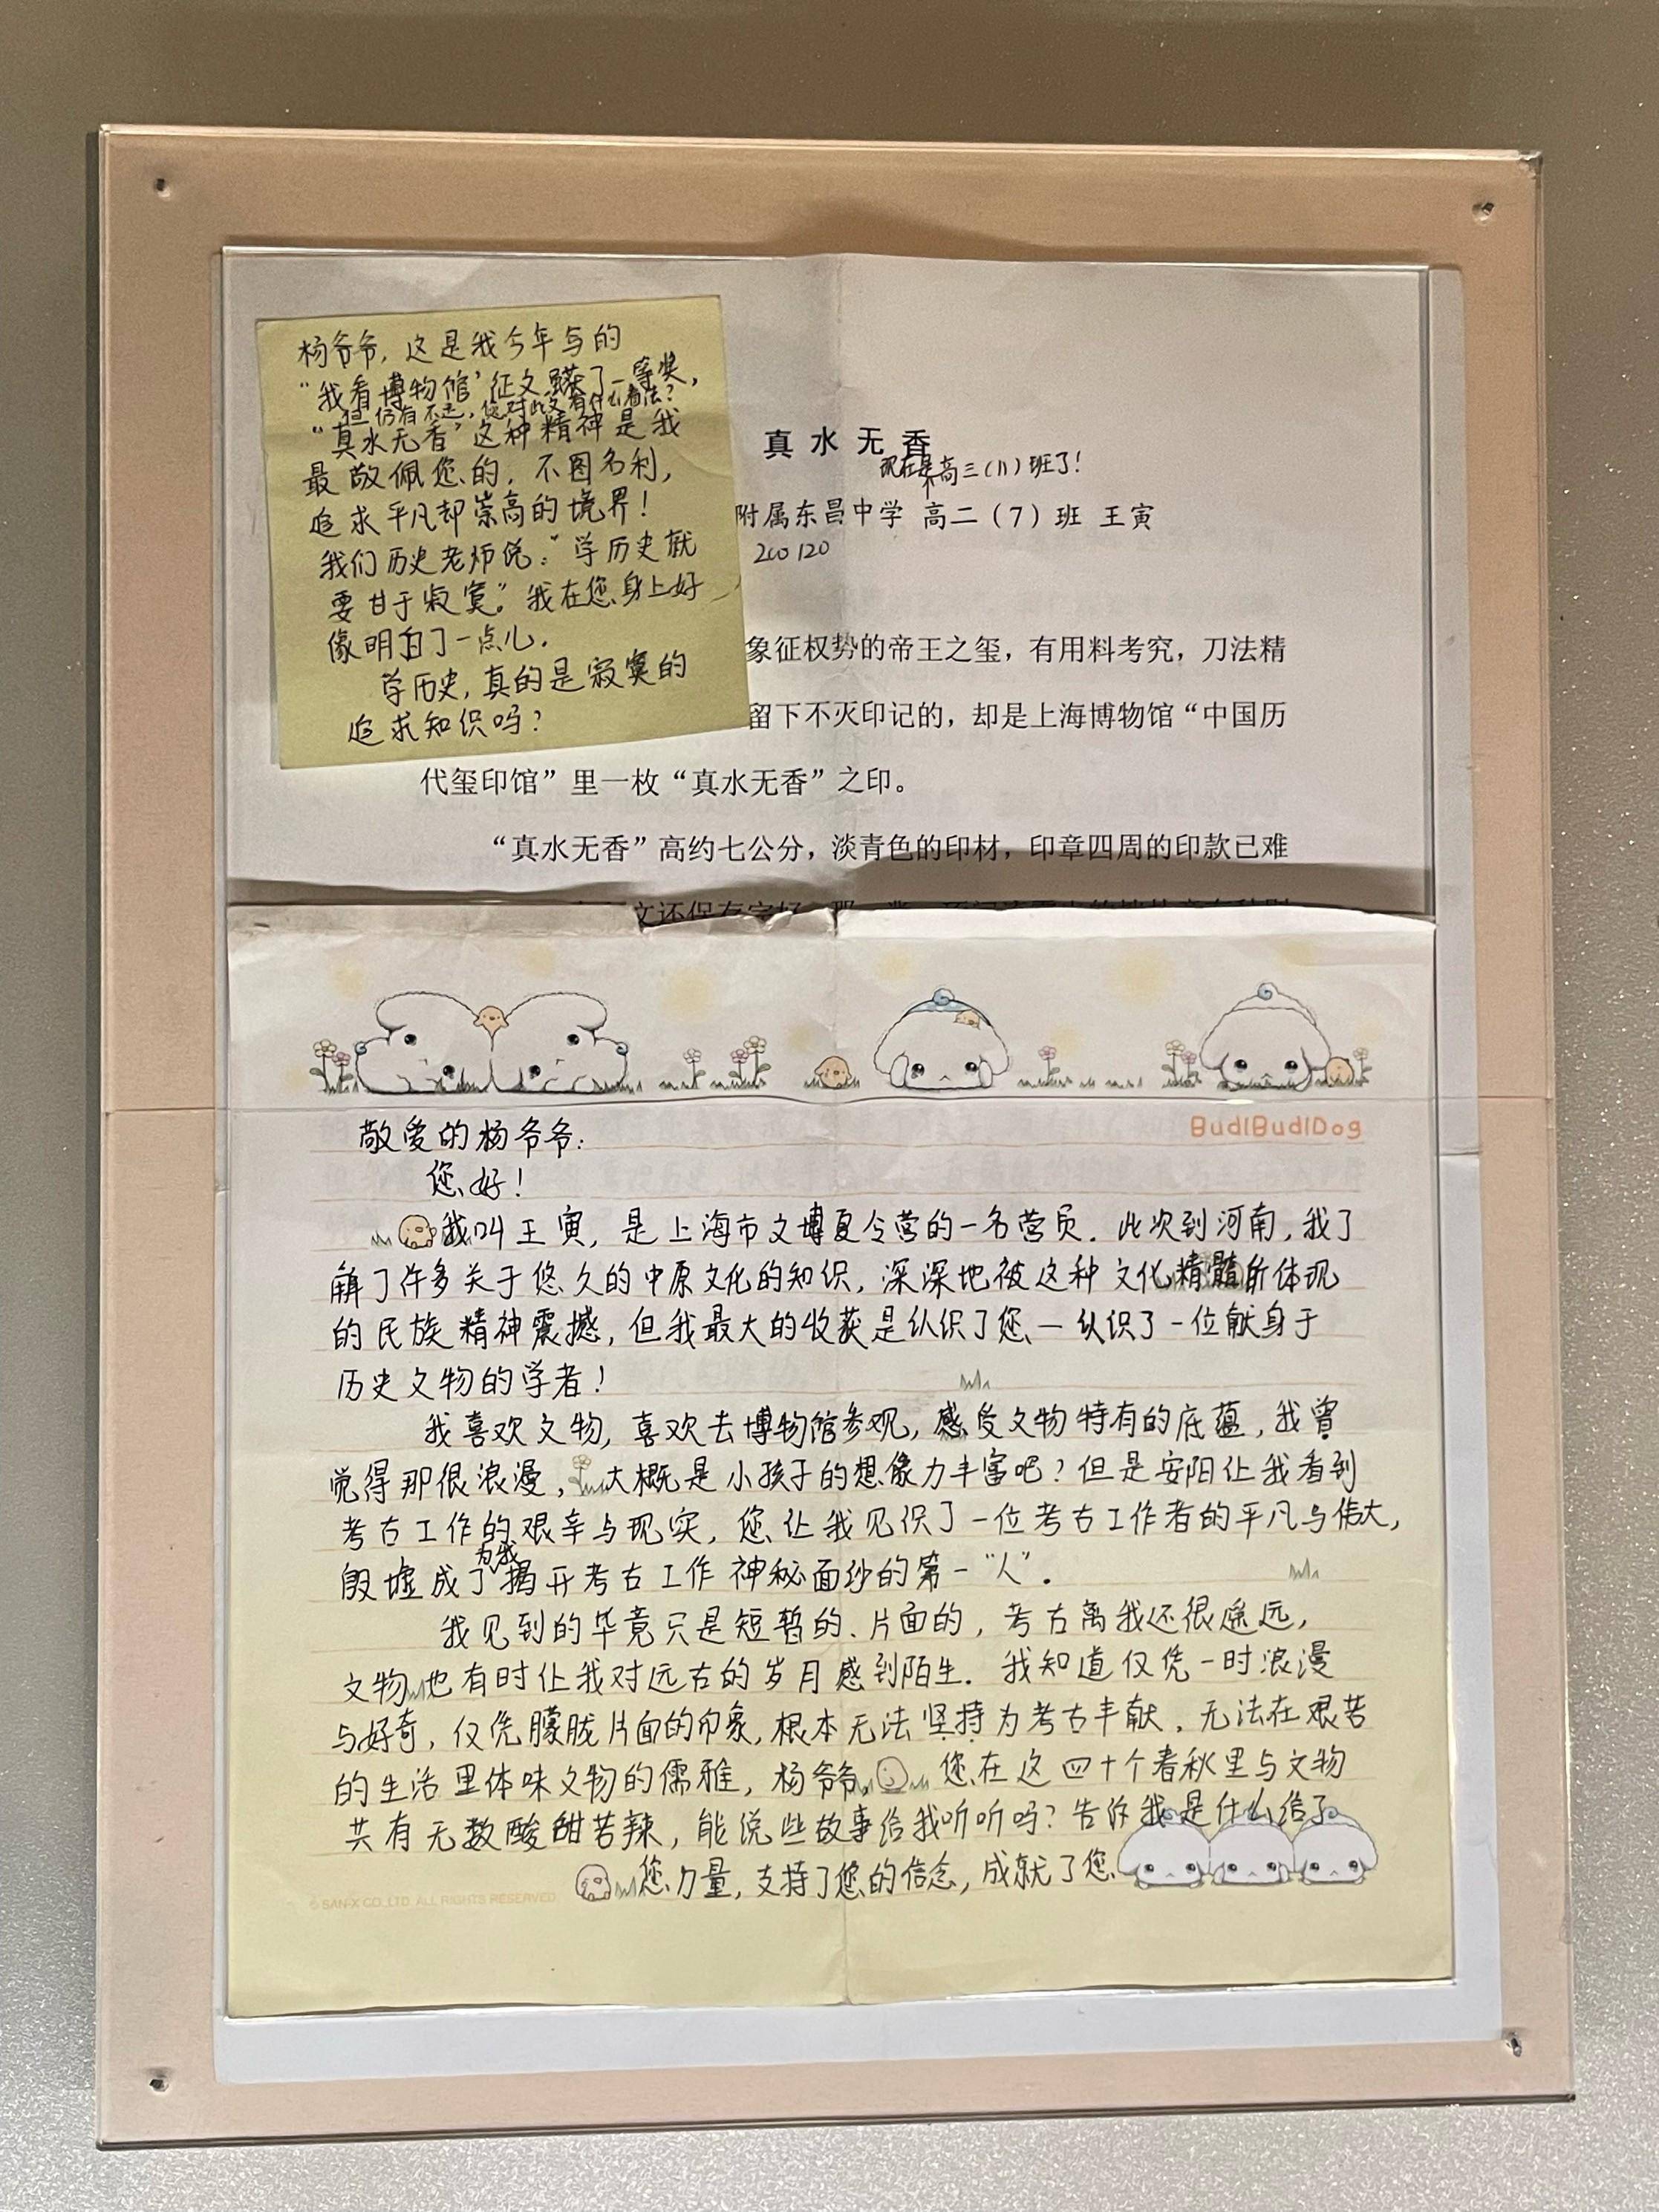 杨爷爷，这是我今年写的
“我看博物馆”征文，获了一等奖，
但仍有不足，您对此文有什么看法？
“真水无香”这种精神是我
最敬佩您的，不图名利，
追求平凡却崇高的境界！
我们历史老师说：“学历史就
要甘于寂寞。”我在您身上好
像明白了一点儿。
学历史，真的是寂寞的
追求知识吗？
真水无香
现在是高三（11）班了！
附属东昌中学 高二（7）班 王寅
200120
象征权势的帝王之玺，有用料考究，刀法精
留下不灭印记的，却是上海博物馆“中国历
代玺印馆”里一枚“真水无香”之印。
“真水无香”高约七公分，淡青色的印材，印章四周的印款已难
文还保存完好
BudiBudiDog
敬爱的杨爷爷：
您好！
我叫王寅，是上海市文博夏令营的一名营员．此次到河南，我了
解了许多关于悠久的中原文化的知识，深深地被这种文化精髓所体现
的民族精神震撼，但我最大的收获是认识了您—认识了一位献身于
历史文物的学者！
我喜欢文物，喜欢去博物馆参观，感受文物特有的底蕴，我曾
觉得那很浪漫，大概是小孩子的想像力丰富吧？但是安阳让我看到
考古工作的艰辛与现实，您让我见识了一位考古工作者的平凡与伟大，
殷墟成了为我揭开考古工作神秘面纱的第一“人”．
我见到的毕竟只是短暂的、片面的，考古离我还很遥远，
文物也有时让我对远古的岁月感到陌生．我知道仅凭一时浪漫
与好奇，仅凭朦胧片面的印象，根本无法坚持为考古奉献，无法在艰苦
的生活里体味文物的儒雅，杨爷爷，您在这四十个春秋里与文物
共有无数酸甜苦辣，能说些故事给我听听吗？告诉我是什么给了
您力量，支持了您的信念，成就了您
© SAN-X CO.,LTD. ALL RIGHTS RESERVED